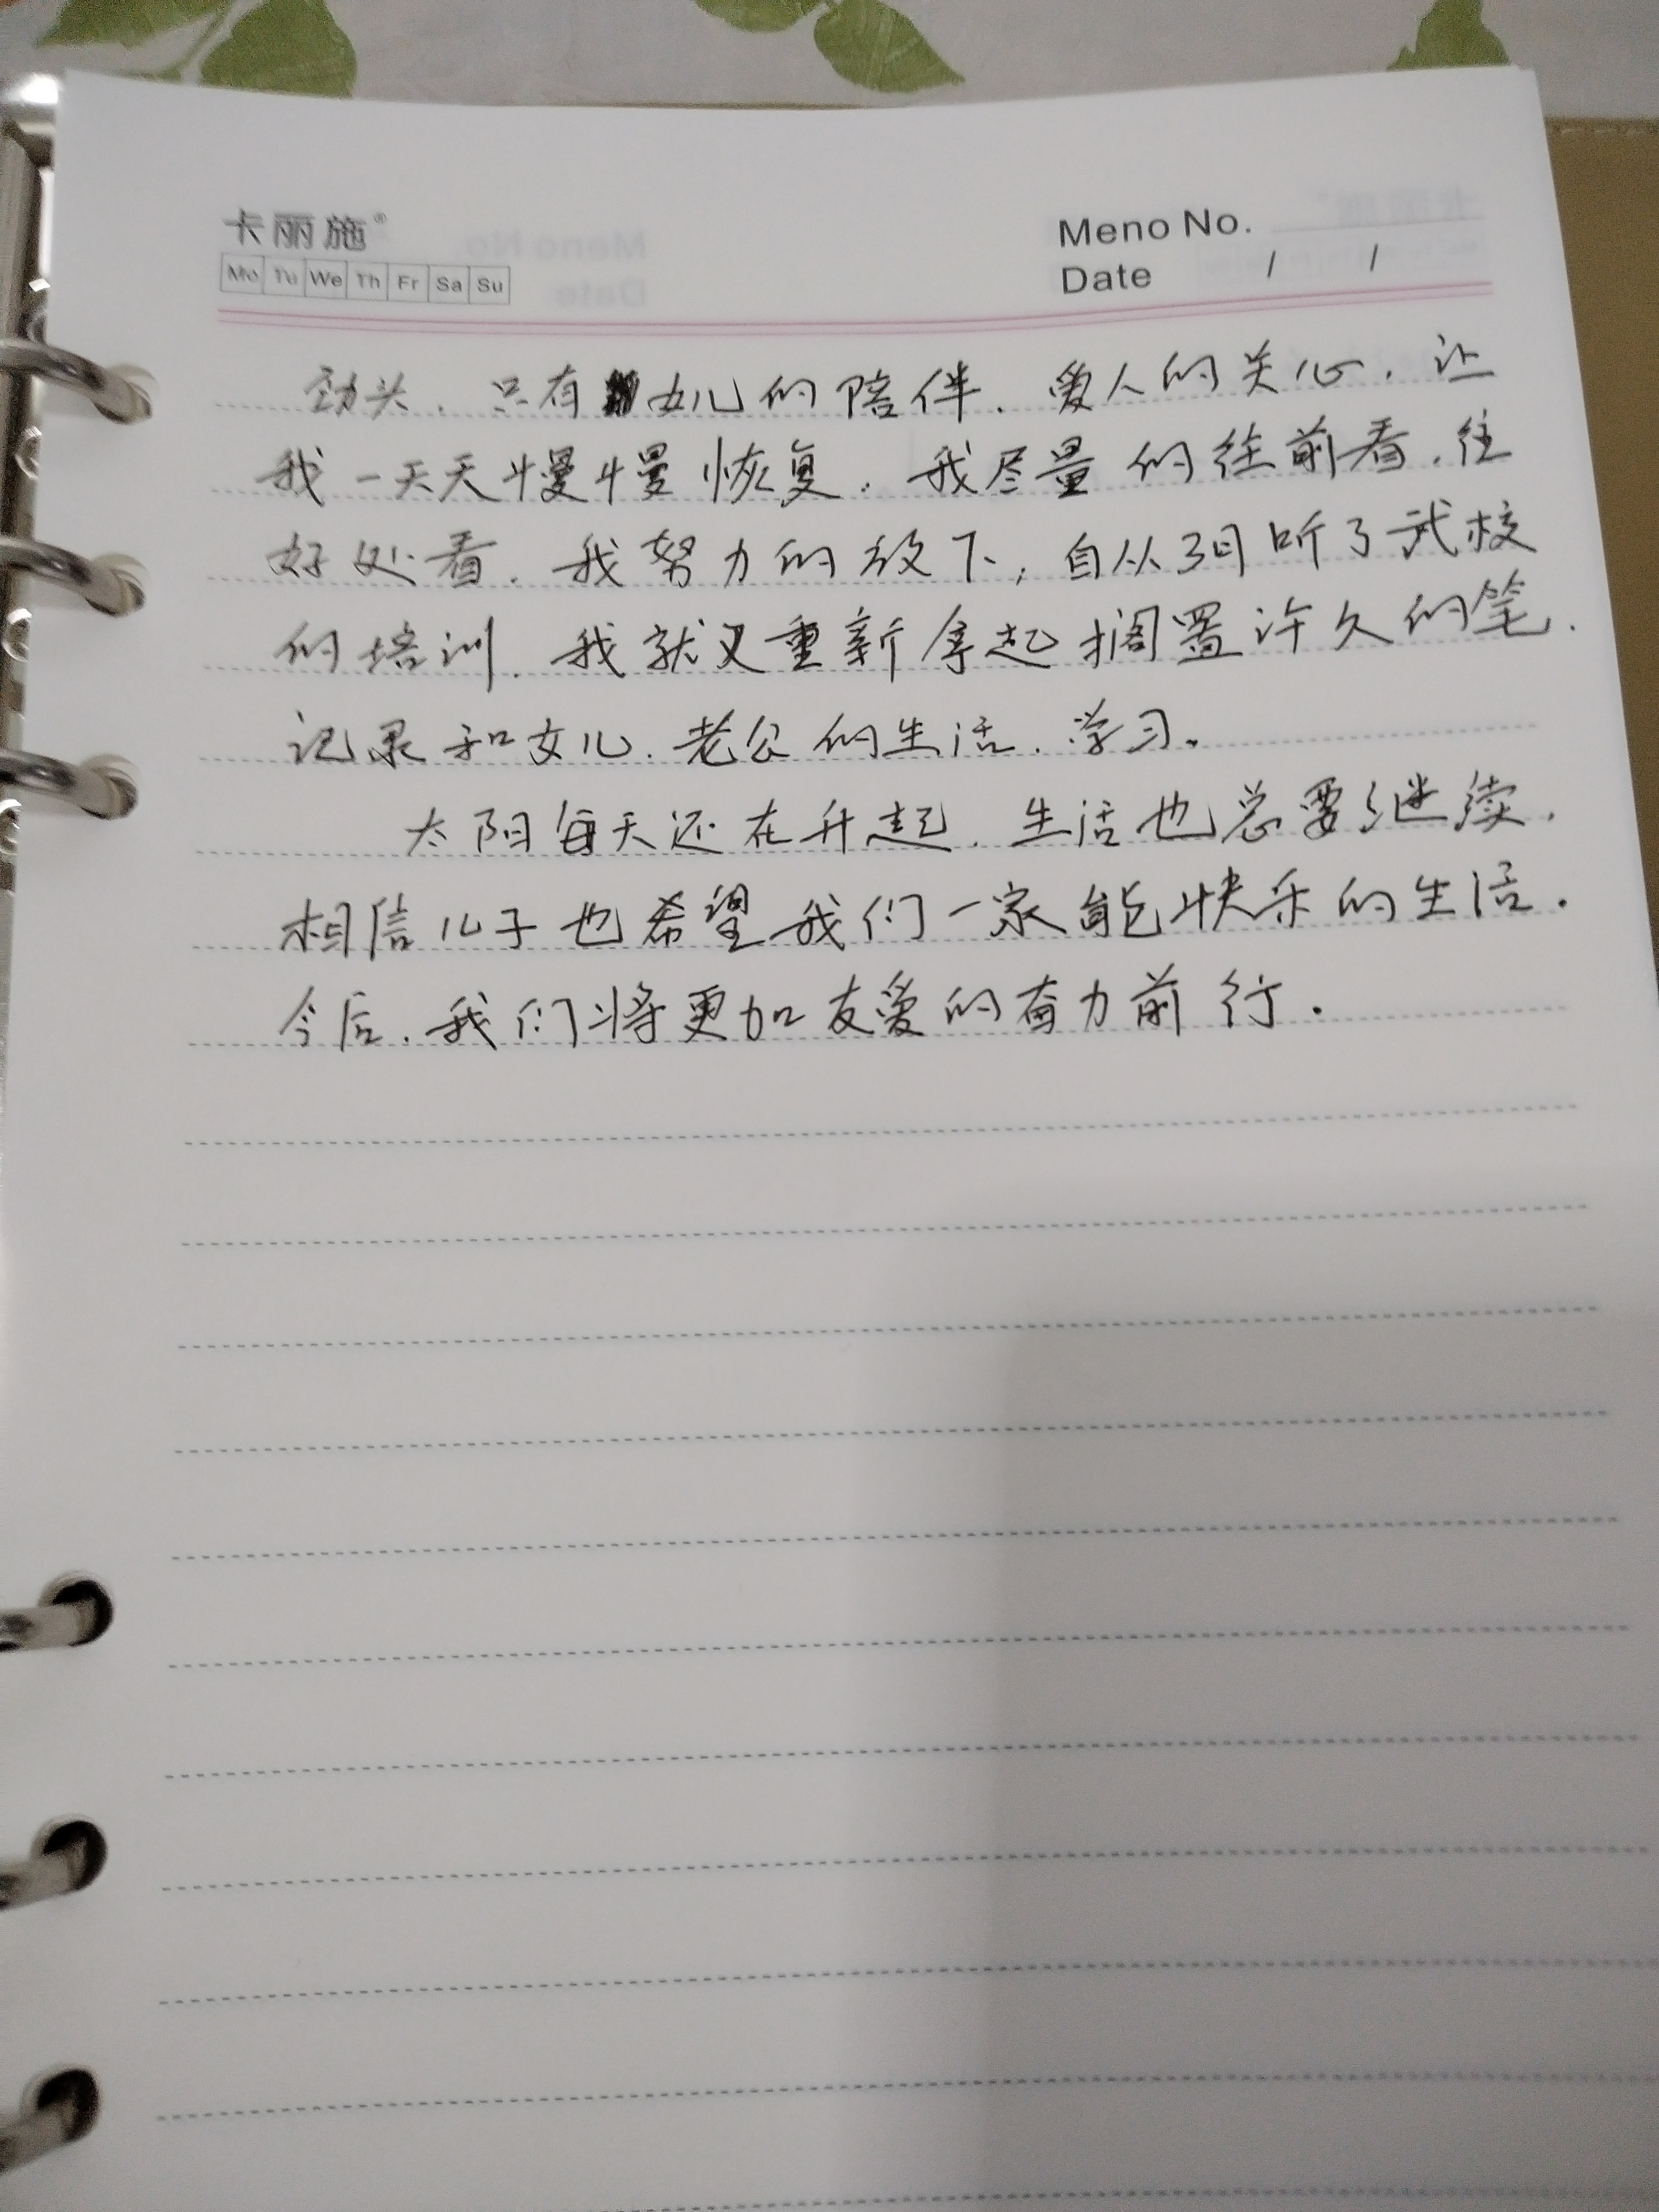 卡丽施®
Mo Tu We Th Fr Sa Su
Meno No.
Date / /
劲头．只有女儿的陪伴．爱人的关心．让
我一天天慢慢恢复．我尽量的往前看．往
好处看．我努力的放下，自从3日听了武校
的培训．我就又重新拿起搁置许久的笔．
记录和女儿．老公的生活．学习。
太阳每天还在升起．生活也总要继续．
相信儿子也希望我们一家能快乐的生活．
今后．我们将更加友爱的奋力前行．